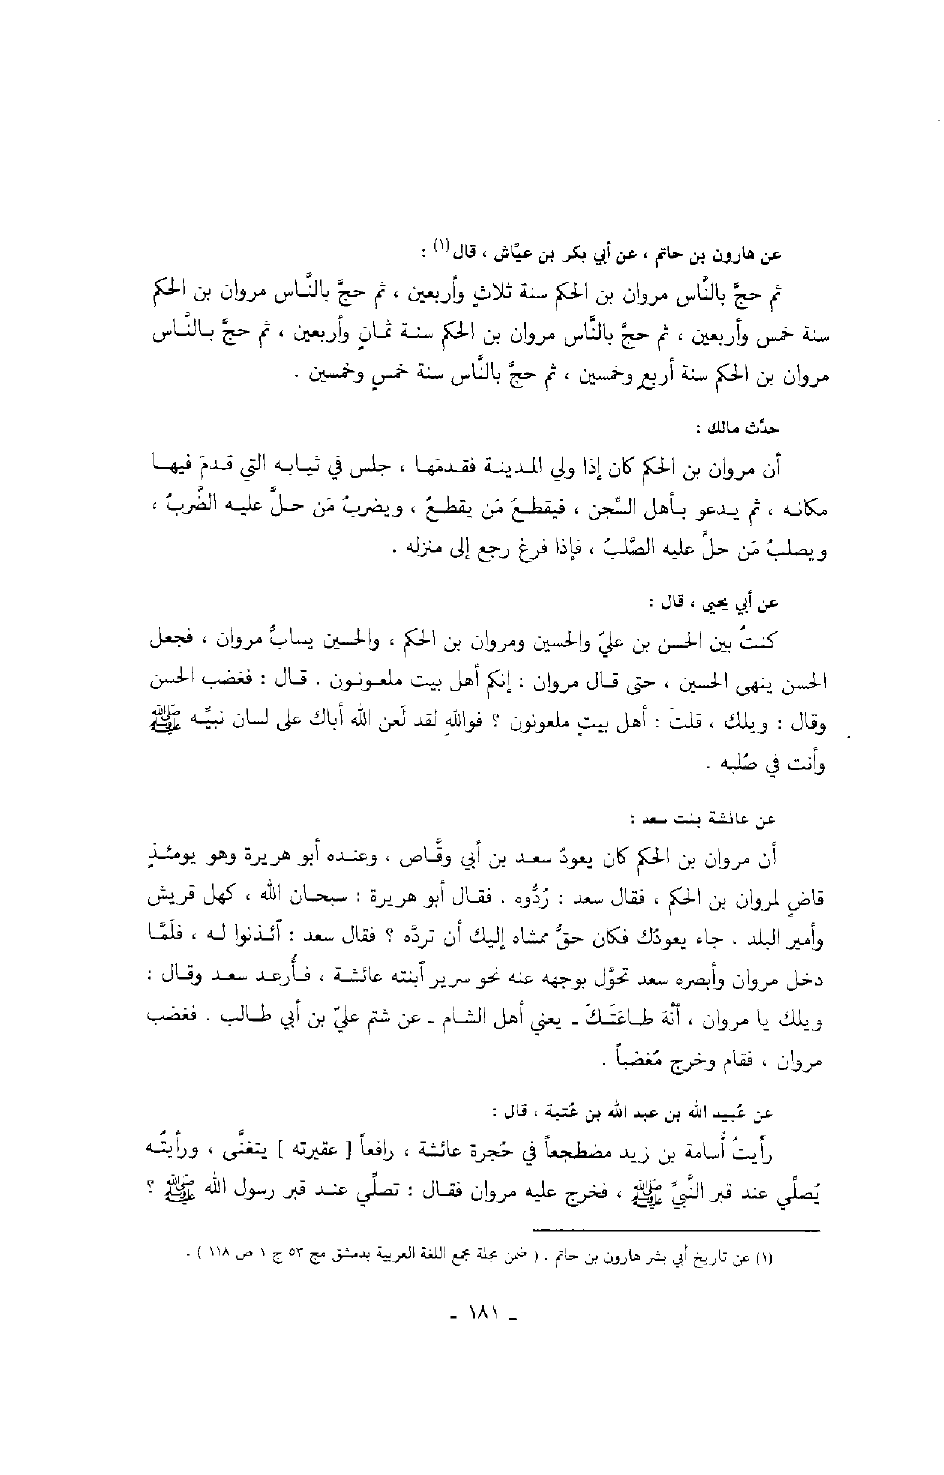 عن هارون بن حاتم ، عن أبي بكر بن عيَّاش ، قال(١) :
ثم حجَّ بالنَّاس مروان بن الحكم سنة ثلاثٍ وأربعين ، ثم حجَّ بالنَّاس مروان بن الحكم
سنة خمس وأربعين ، ثم حجَّ بالنَّاس مروان بن الحكم سنة ثمانٍ وأربعين ، ثم حجَّ بالنَّاس
مروان بن الحكم سنة أربع وخمسين ، ثم حجَّ بالنَّاس سنة خمسٍ وخمسين .
حدَّث مالك :
أن مروان بن الحكم كان إذا ولي المدينة فقدمَها ، جلس في ثيابه التي قدمَ فيها
مكانه ، ثم يدعو بأهل السِّجن ، فيقطعَ مَن يقطعُ ، ويضربُ مَن حلَّ عليه الضَّربُ ،
ويصلبُ مَن حلَّ عليه الصَّلبُ ، فإذا فرغ رجع إلى منزله .
عن أبي يحيى ، قال :
كنتُ بين الحسن بن عليّ والحسين ومروان بن الحكم ، والحسين يسابُّ مروان ، فجعل
الحسن ينهى الحسين ، حتى قال مروان : إنكم أهل بيت ملعونون . قال : فغضب الحسن
وقال : ويلك ، قلتَ : أهل بيتٍ ملعونون ؟ فواللهِ لقد لعن الله أباك على لسان نبيِّه ﷺ
وأنت في صُلبه .
عن عائشة بنت سعد :
أن مروان بن الحكم كان يعودُ سعد بن أبي وقَّاص ، وعنده أبو هريرة وهو يومئذٍ
قاضٍ لمروان بن الحكم ، فقال سعد : رُدُّوه . فقال أبو هريرة : سبحان الله ، كهل قريش
وأمير البلد . جاء يعودُك فكان حقُّ ممشاه إليك أن تردَّه ؟ فقال سعد : ائذنوا له ، فلمَّا
دخل مروان وأبصره سعد تحوَّل بوجهه عنه نحو سرير ابنته عائشة ، فأُرعد سعد وقال :
ويلك يا مروان ، انْهَ طاعتَكَ ـ يعني أهل الشام ـ عن شتم عليّ بن أبي طالب . فغضب
مروان ، فقام وخرج مُغضباً .
عن عُبيد الله بن عبد الله بن عُتبة ، قال :
رأيتُ أُسامة بن زيد مضطجعاً في حُجرة عائشة ، رافعاً [ عقيرته ] يتغنَّى ، ورأيتُه
يُصلِّي عند قبر النَّبيِّ ﷺ ، فخرج عليه مروان فقال : تصلِّي عند قبر رسول الله ﷺ ؟
(١) عن تاريخ أبي بشر هارون بن حاتم . ( ضمن مجلة مجمع اللغة العربية بدمشق مج ٥٣ ج ١ ص ١١٨ ) .
ـ ١٨١ ـ